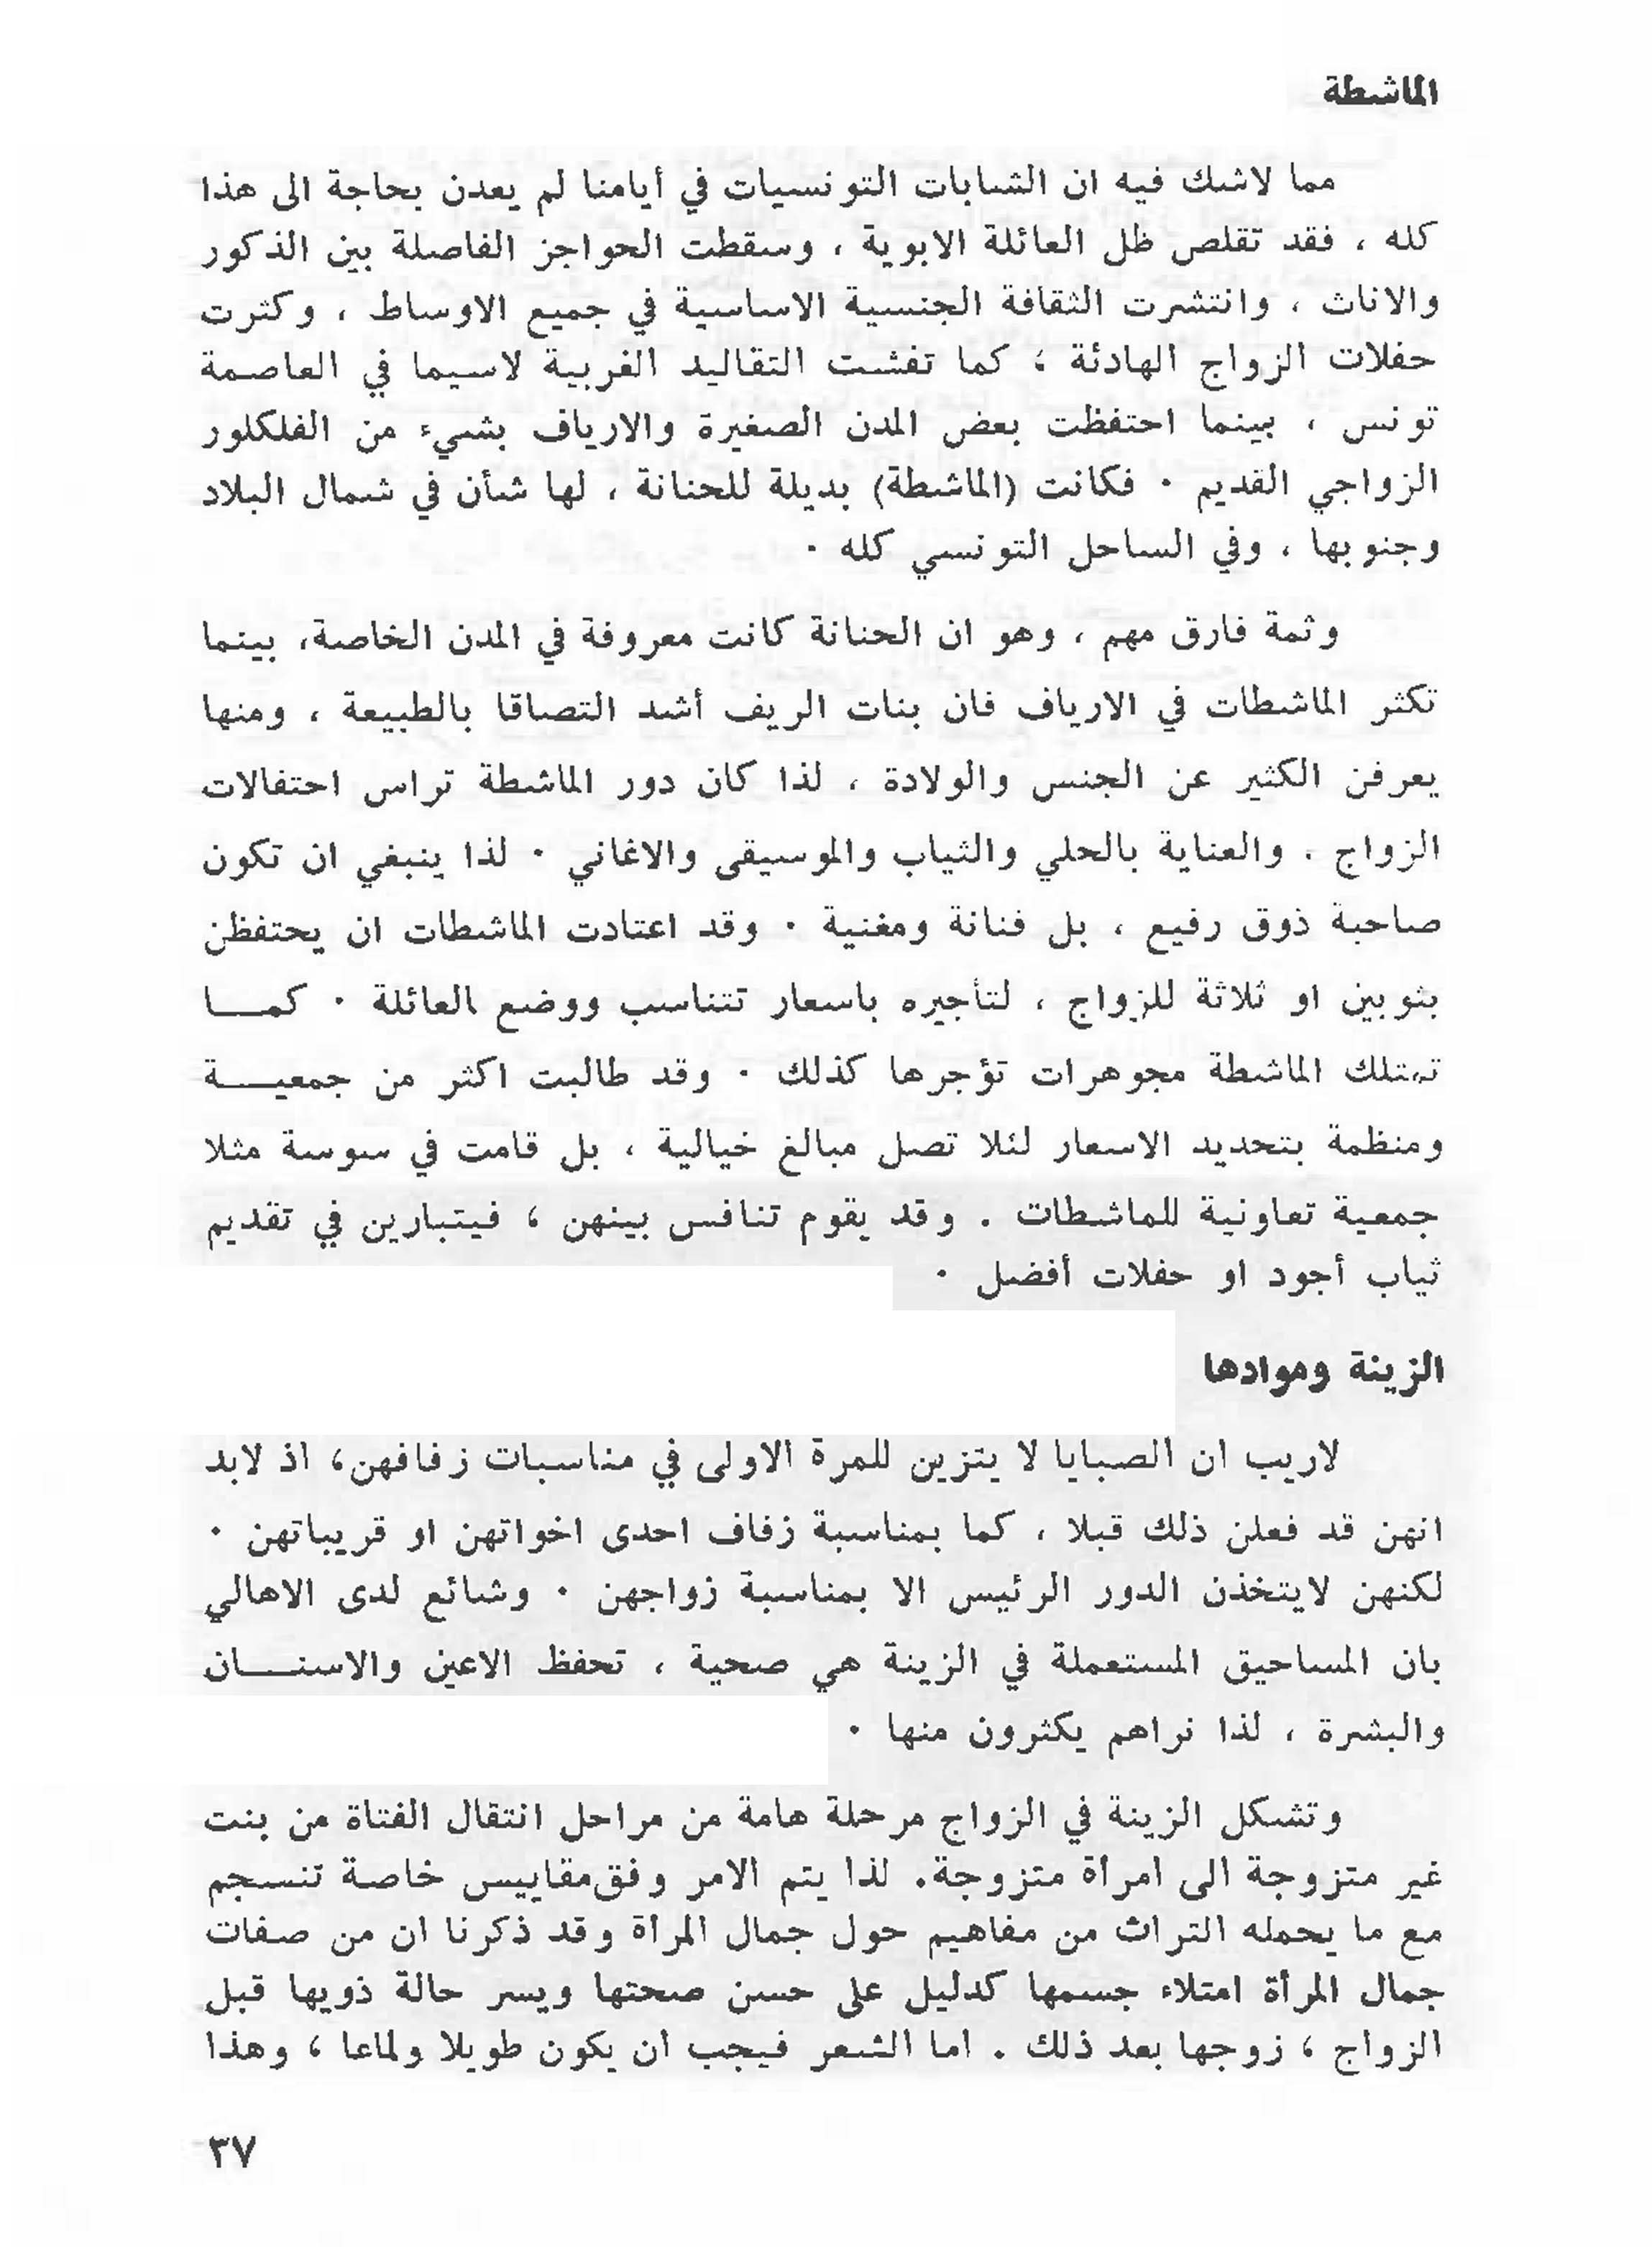 الماشطة
مما لاشك فيه ان الشابات التونسيات في أيامنا لم يعدن بحاجة الى هذا
كله ، فقد تقلص ظل العائلة الابوية ، وسقطت الحواجز الفاصلة بين الذكور
والاناث ، وانتشرت الثقافة الجنسية الاساسية في جميع الاوساط ، وكثرت
حفلات الزواج الهادئة ؛ كما تفشت التقاليد الغربية لاسيما في العاصمة
تونس ، بينما احتفظت بعض المدن الصغيرة والارياف بشيء من الفلكلور
الزواجي القديم · فكانت (الماشطة) بديلة للحنانة ، لها شأن في شمال البلاد
وجنوبها ، وفي الساحل التونسي كله ·
وثمة فارق مهم ، وهو ان الحنانة كانت معروفة في المدن الخاصة، بينما
تكثر الماشطات في الارياف فان بنات الريف أشد التصاقا بالطبيعة ، ومنها
يعرفن الكثير عن الجنس والولادة ، لذا كان دور الماشطة تراس احتفالات
الزواج ، والعناية بالحلي والثياب والموسيقى والاغاني · لذا ينبغي ان تكون
صاحبة ذوق رفيع ، بل فنانة ومغنية · وقد اعتادت الماشطات ان يحتفظن
بثوبين او ثلاثة للزواج ، لتأجيره باسعار تتناسب ووضع العائلة · كمــا
تمتلك الماشطة مجوهرات تؤجرها كذلك · وقد طالبت اكثر من جمعيــة
ومنظمة بتحديد الاسعار لئلا تصل مبالغ خيالية ، بل قامت في سوسة مثلا
جمعية تعاونية للماشطات . وقد يقوم تنافس بينهن ، فيتبارين في تقديم
ثياب أجود او حفلات أفضل ·
الزينة وموادها
لاريب ان الصبايا لا يتزين للمرة الاولى في مناسبات زفافهن، اذ لابد
انهن قد فعلن ذلك قبلا ، كما بمناسبة زفاف احدى اخواتهن او قريباتهن ·
لكنهن لايتخذن الدور الرئيس الا بمناسبة زواجهن · وشائع لدى الاهالي
بان المساحيق المستعملة في الزينة هي صحية ، تحفظ الاعين والاسنــان
والبشرة ، لذا نراهم يكثرون منها ·
وتشكل الزينة في الزواج مرحلة هامة من مراحل انتقال الفتاة من بنت
غير متزوجة الى امرأة متزوجة. لذا يتم الامر وفق مقاييس خاصة تنسجم
مع ما يحمله التراث من مفاهيم حول جمال المرأة وقد ذكرنا ان من صفات
جمال المرأة امتلاء جسمها كدليل على حسن صحتها ويسر حالة ذويها قبل
الزواج ، زوجها بعد ذلك . اما الشعر فيجب ان يكون طويلا ولماعا ، وهذا
٣٧